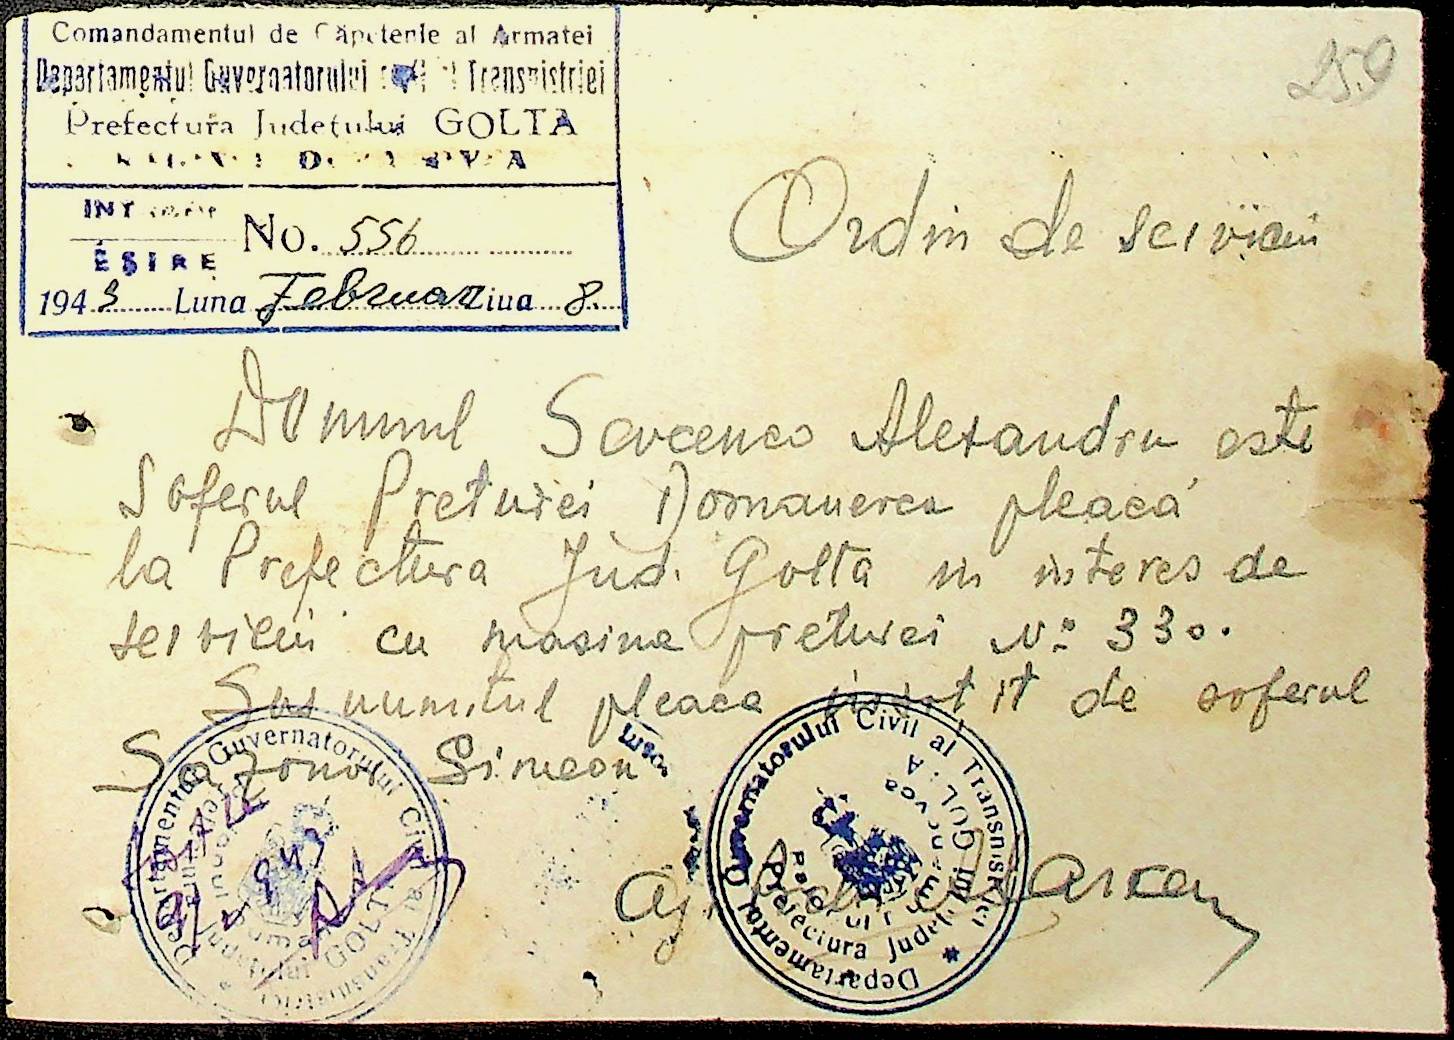 Comandamentul de Căpetenie al Armatei
Departamentul Guvernatorului al Transnistriei
Prefectura Județului GOLTA
INT
No. 556
EȘIRE
1943 Luna Februar Ziua 8
250
Ordin de serviciu
Domnul Savcenco Alexandru este
Soferul Preturei Domanevca pleacă
la Prefectura Jud. Golta in interes de
serviciu cu masina preturei No 330.
Sus numitul pleaca insotit de soferul
Simeon
Departamentul Guvernatorului Civil al Transnistriei
Prefectura Județului GOLTA
Departamentul Guvernatorului Civil al Transnistriei
Prefectura Județului GOLTA